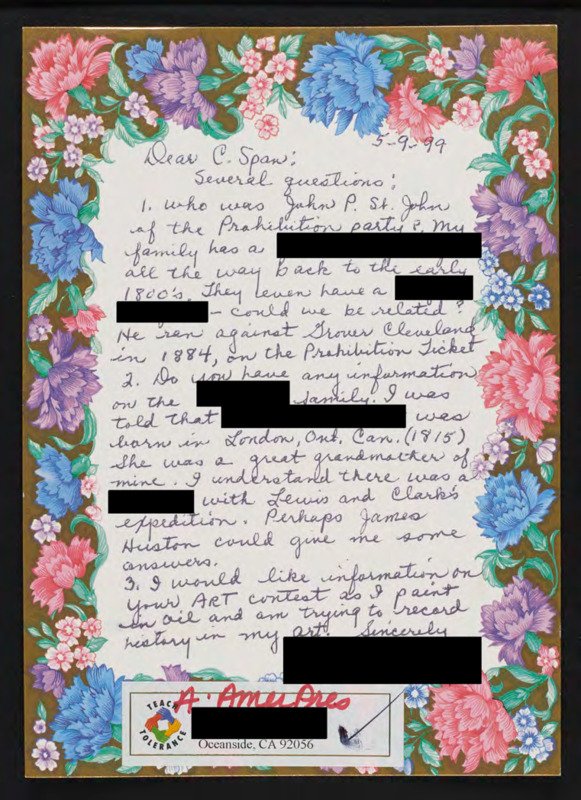 5-9-99
Dear C. Span:
Several questions:
1. Who was John P. St. John
of the Prohibition party? My
family has a
all the way back to the early
1800's. They even have a
- could we be related?
He ran against Grover Cleveland
in 1884, on the Prohibition Ticket
2. Do you have any information
on the family. I was
told that was
born in London, Ont. Can. (1815)
She was a great grandmother of
mine. I understand there was a
with Lewis and Clark's
expedition. Perhaps James
Huston could give me some
answers.
3. I would like information on
your ART contest as I paint
in oil and am trying to record
history in my art. Sincerely
A. Amer Pres
TEACH
TOLERANCE
Oceanside, CA 92056